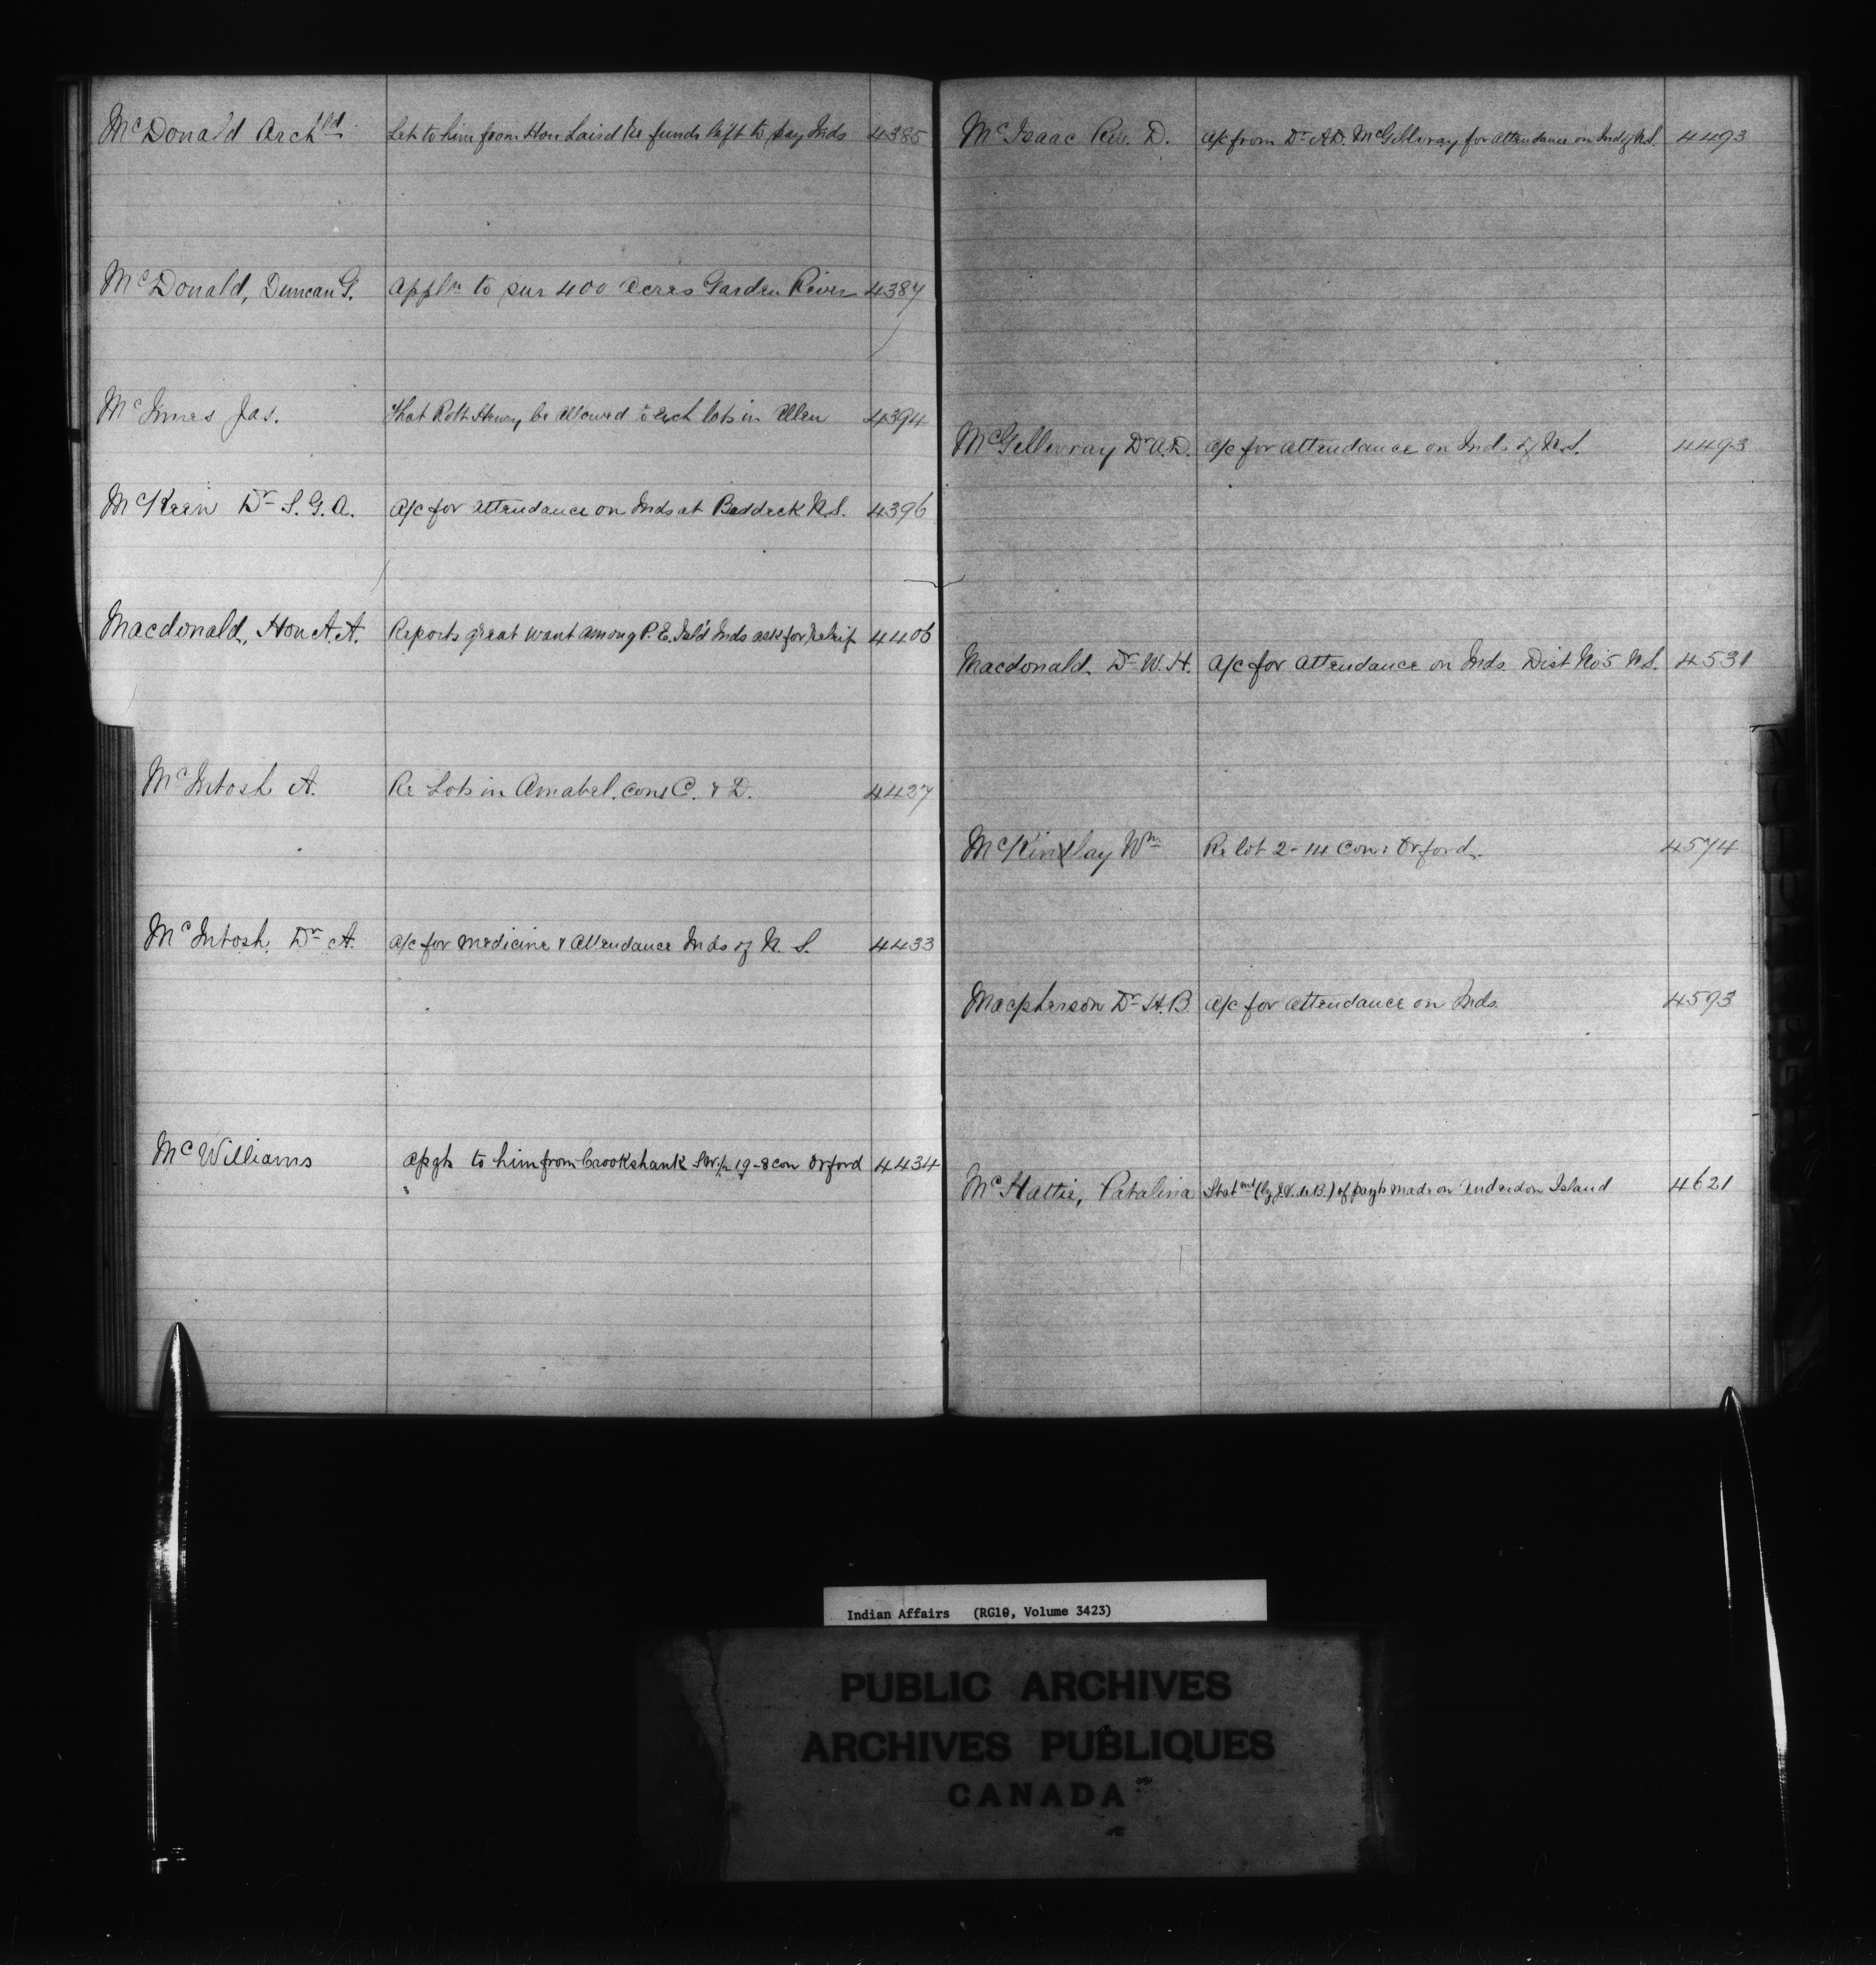 McDonald Archld Let to him from Hon Laird re funds left to pay Inds 4385
McDonald, Duncan G. Appln to pur 400 acres Garden River 4387
McInnes Jas. That Robt Henry be allowed to exch lots in Allen 4394
McKeen Dr S. G. A. A/c for attendance on Inds at Baddeck N.S. 4396
Macdonald, Hon A. A. Reports great want among P. E. Isl'd Inds ask for relief 4406
McIntosh A. Re Lots in Amabel. cons C. & D. 4427
McIntosh, Dr A. A/c for medicine & attendance Inds of N. S. 4433
McWilliams to him from Crookshank 19-8 con Orford 4434
McIsaac Rev. D. A/c from Dr A.D. McGillivray for attendance on Inds of N.S. 4493
McGillivray Dr A.D. A/c for attendance on Inds of N.S. 4493
Macdonald, Dr W. H. A/c for attendance on Inds. Dist No 5 N.S. 4531
McKinlay Wm Re lot 2-14 Con: Orford. 4574
Macpherson Dr H. B. A/c for attendance on Inds. 4593
McHattie, Patalina Statmt (by J.V. de B.) of payts made on Anderdon Island 4621
Indian Affairs (RG10, Volume 3423)
PUBLIC ARCHIVES
ARCHIVES PUBLIQUES
CANADA